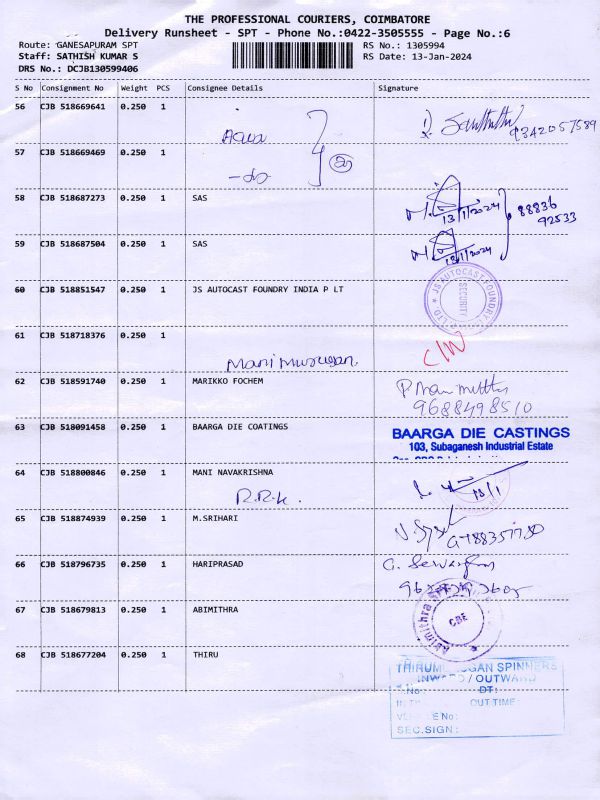 THE PROFESSIONAL COURIERS, COIMBATORE
Delivery Runsheet - SPT - Phone No.:0422-3505555 - Page No.:6
Route: GANESAPURAM SPT
RS No.: 1305994
Staff: SATHISH KUMAR S
RS Date: 13-Jan-2024
DRS No.: DCJB130599406
S No Consignment No Weight PCS Consignee Details Signature
56 CJB 518669641 0.250 1
9342057589
57 CJB 518669469 0.250 1
58 CJB 518687273 0.250 1 SAS
13/1/2024
88836
92533
59 CJB 518687504 0.250 1 SAS
13/1/2024
60 CJB 518851547 0.250 1 JS AUTOCAST FOUNDRY INDIA P LT
JS AUTOCAST FOUNDRY
SECURITY
61 CJB 518718376 0.250 1
Mani Murugan.
62 CJB 518591740 0.250 1 MARIKKO FOCHEM
9688498510
63 CJB 518091458 0.250 1 BAARGA DIE COATINGS
BAARGA DIE CASTINGS
103, Subaganesh Industrial Estate
64 CJB 518800846 0.250 1 MANI NAVAKRISHNA
R.R.K.
13/1
65 CJB 518874939 0.250 1 M.SRIHARI
66 CJB 518796735 0.250 1 HARIPRASAD
67 CJB 518679813 0.250 1 ABIMITHRA
Abimithra
CBE
68 CJB 518677204 0.250 1 THIRU
SPINNERS
INWARD / OUTWARD
No: DT:
OUT TIME:
SEC.SIGN: